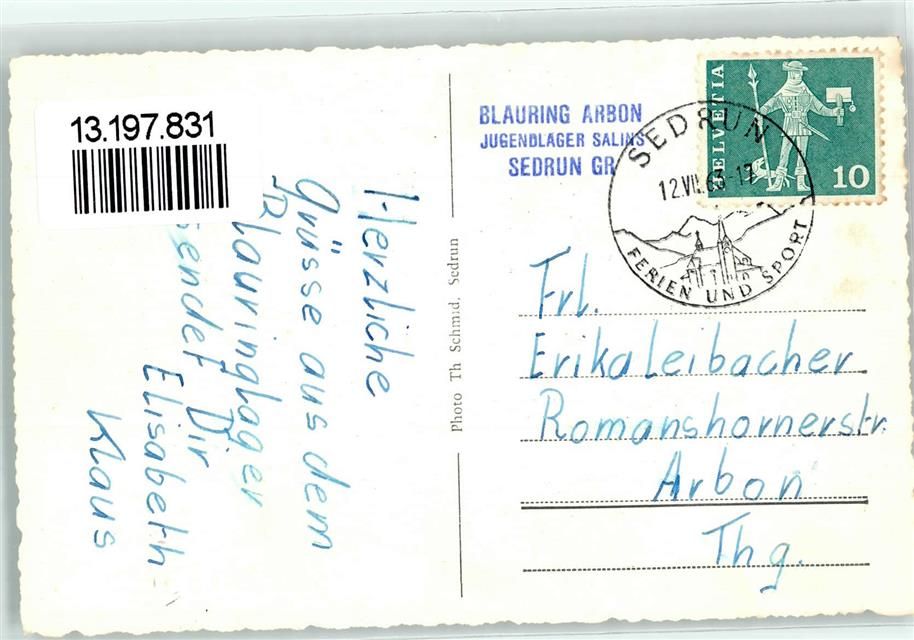 13.197.831
Herzliche
Grüsse aus dem
Blauringlager
sendet Dir
Elisabeth
Klaus
Photo Th Schmid, Sedrun
BLAURING ARBON
JUGENDLAGER SALINS
SEDRUN GR
SEDRUN
12.VII.63-17
FERIEN UND SPORT
HELVETIA
10
Frl.
Erika Leibacher
Romanshornerstr.
Arbon
Thg.